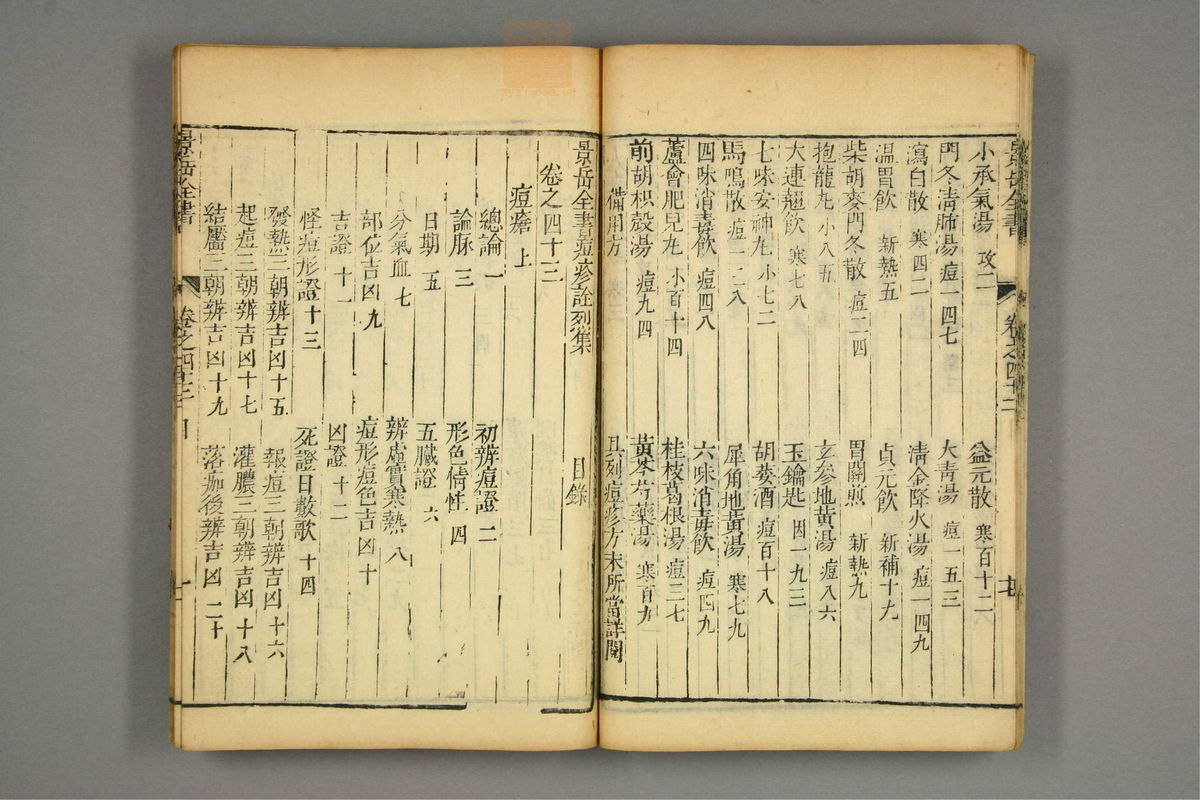 景岳全書 卷之四十二
小承氣湯 攻二 益元散 寒百十二
門冬清肺湯 痘一四七 大青湯 痘一五三
瀉白散 寒四二 清金降火湯 痘一四九
溫胃飲 新熱五 貞元飲 新補十九
柴胡麥門冬散 痘二四 胃關煎 新熱九
抱龍丸 小八五 玄參地黃湯 痘八六
大連翹飲 寒七八 玉鑰匙 因一九三
七味安神丸 小七二 胡荽酒 痘百十八
馬鳴散 痘一二八 犀角地黃湯 寒七九
四味消毒飲 痘四八 六味消毒飲 痘四九
蘆會肥兒丸 小百十四 桂枝葛根湯 痘三七
前胡枳殼湯 痘九四 黃芩芍藥湯 寒百九
備用方 具列痘疹方末所當詳閱
景岳全書痘疹詮烈集 目錄
卷之四十三
痘瘡 上
總論 一 初辨痘證 二
論脉 三 形色情性 四
日期 五 五臟證 六
分氣血 七 辨虛實寒熱 八
部位吉凶 九 痘形痘色吉凶 十
吉證 十一 凶證 十二
怪痘形證 十三 死證日數歌 十四
發熱三朝辨吉凶 十五 報痘三朝辨吉凶 十六
起痘三朝辨吉凶 十七 灌膿三朝辨吉凶 十八
結靨三朝辨吉凶 十九 落痂後辨吉凶 二十
景岳全書 卷之四十三 目